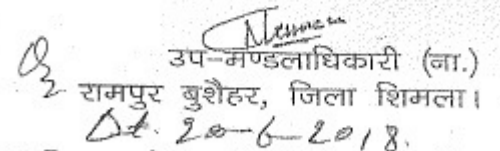 उप-मण्डलाधिकारी (ना.)
रामपुर बुशैहर, जिला शिमला।
Dt. 20-6-2018.